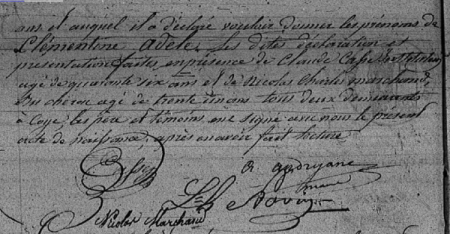 ans et auquel il a déclaré vouloir donner les prénoms de
Clémentine Adèle, les dites déclaration et
présentation faites en présence de Claude
agé de quarante six ans et de Nicolas Charles Marchand
agé de trente un ans tous deux demeurants
à Coye, les père et témoins ont signé avec nous le présent
acte de naissance, après en avoir fait lecture
Nicolas Marchand
maire